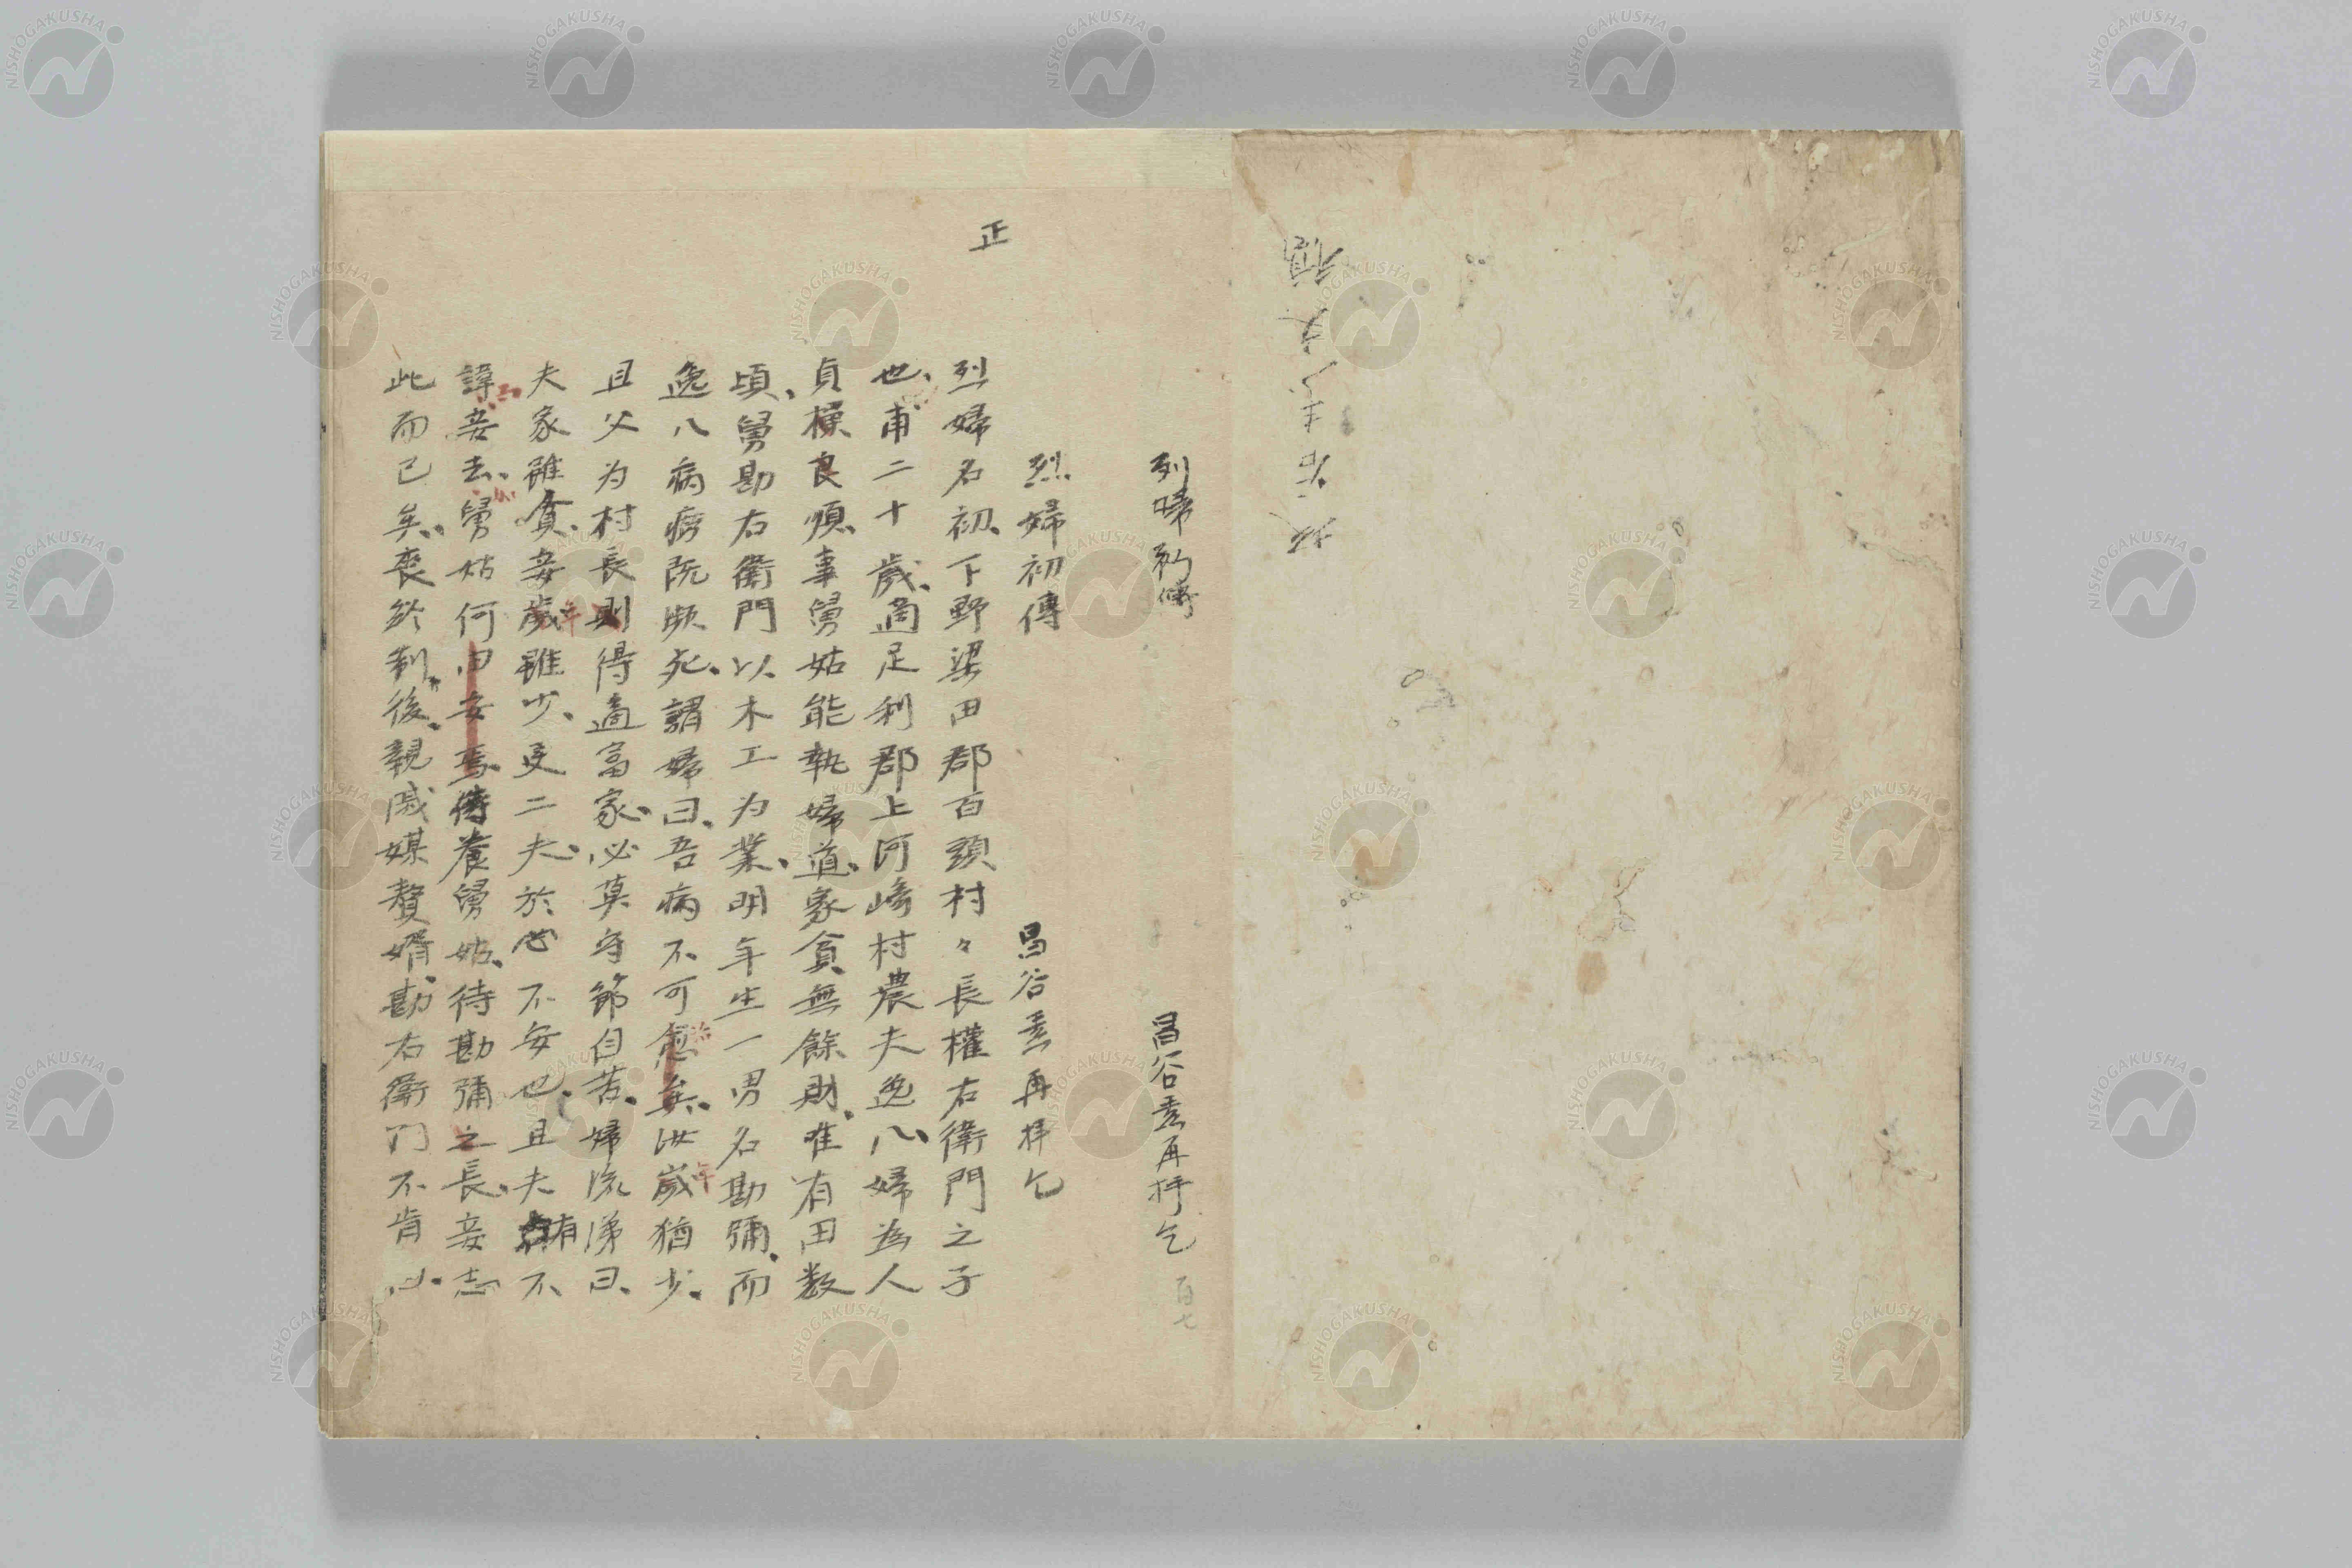 列婦初傳　昌谷𡸁再拝乞
百七
烈婦初傳　昌谷𡸁再拝乞
正
烈婦名初、下野梁田郡百頭村々長權右衛門之子
也、甫二十歲、適足利郡上河崎村農夫逸八、婦為人
貞操良順、事舅姑能執婦道、家貧無餘財、唯有田数
頃、舅勘右衛門以木工为業、明年生一男名勘彌、而
逸八病癆既瀕死、謂婦曰、吾病不可愈矣、汝歲猶少、
年
且父为村長、則得適富家、必莫守節自苦、婦流涕曰、
夫家雖貧、妾歲雖少、更二夫、於心不安也、且夫有不
年
諱妾去、舅姑何由安焉、侍養舅姑、待勘彌之長、妾志
此而已矣、喪終制後、親戚媒贅婿、勘右衛門不肯
NISHOGAKUSHA